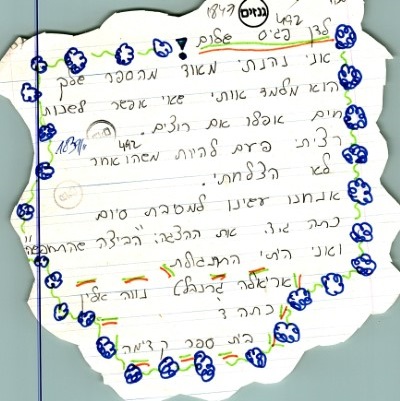 1849
גנזים
492
לדן פגיס שלום!
אני נהנתי מאוד מהספר שלך
הוא מלמד אותי שאי אפשר לשנות
חיים אפלו אם רוצים.
492
רציתי פעם להיות משהו אחר
לא הצלחתי.
אנחנו עשינו למסבת סיום
כתה ג' את ההצגה: "הביצה שהתחפשה"
ואני הייתי התרנגולת
אריאלה נווה אילן
כתה ד
בית ספר קדימה